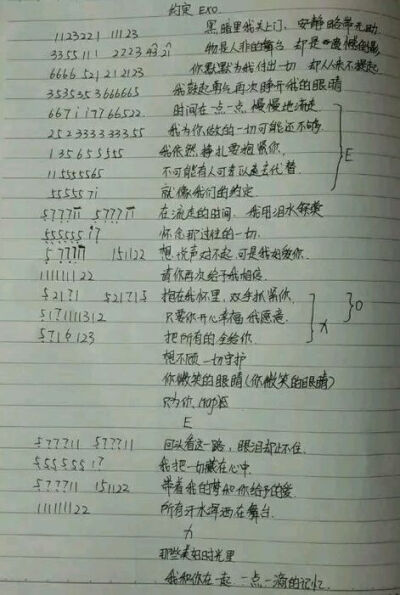 约定 EXO.
1123221 11123 黑暗里我关上门, 安静 带无助
3355111 2223 43 2i 物是人非的舞台 却是
6666 521 212123 你默默为我付出一切 却从未不提起
3535353666665 我鼓起勇气再次睁开我的眼睛
667i i7766522. 时间在一点一点 慢慢地流走
2523333333355 我为你做的一切可能还不够.
135655555 我依然挣扎要抱紧你.
11555565 不可能有人可亲以 去代替. E
555557i 就像我们的约定
5????11 5????11 在流走的时间. 我用泪水
555555 i? 怀念那过往的一切.
5????11 151122 想说声对不起. 可是我 爱你.
111111122 请你再次给予我相信
521?1 521?15 抱在我怀里. 双手抓紧你.
51?1111312 只要你开心幸福 我愿意. O
5716123 把所有的全给你. X
想不顾一切守护
你微笑的眼睛(你微笑的眼睛)
只为你,
E
5???11 5???11 回头看这一路, 眼泪却止不住.
555555 i? 我把一切藏在心中.
5???11 151122 带着我的梦和你给予的爱
111111122 所有汗水挥洒在舞台.
X
那些美好时光里
我和你在一起 一点一滴的记忆.